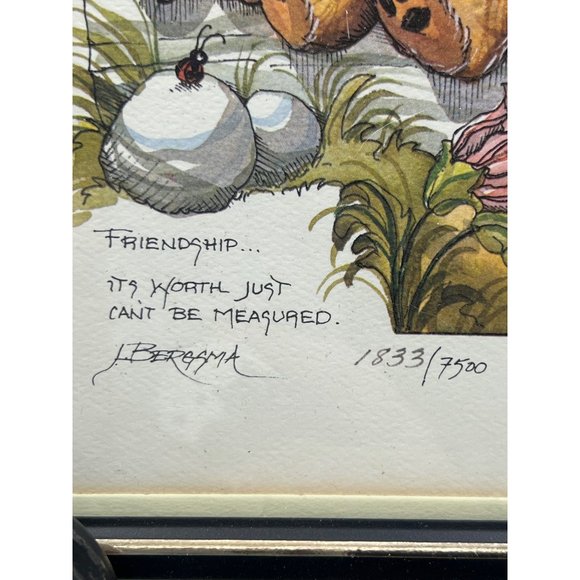 FRIENDSHIP...
ITS WORTH JUST
CAN'T BE MEASURED.
J. BERGSMA 1833/7500